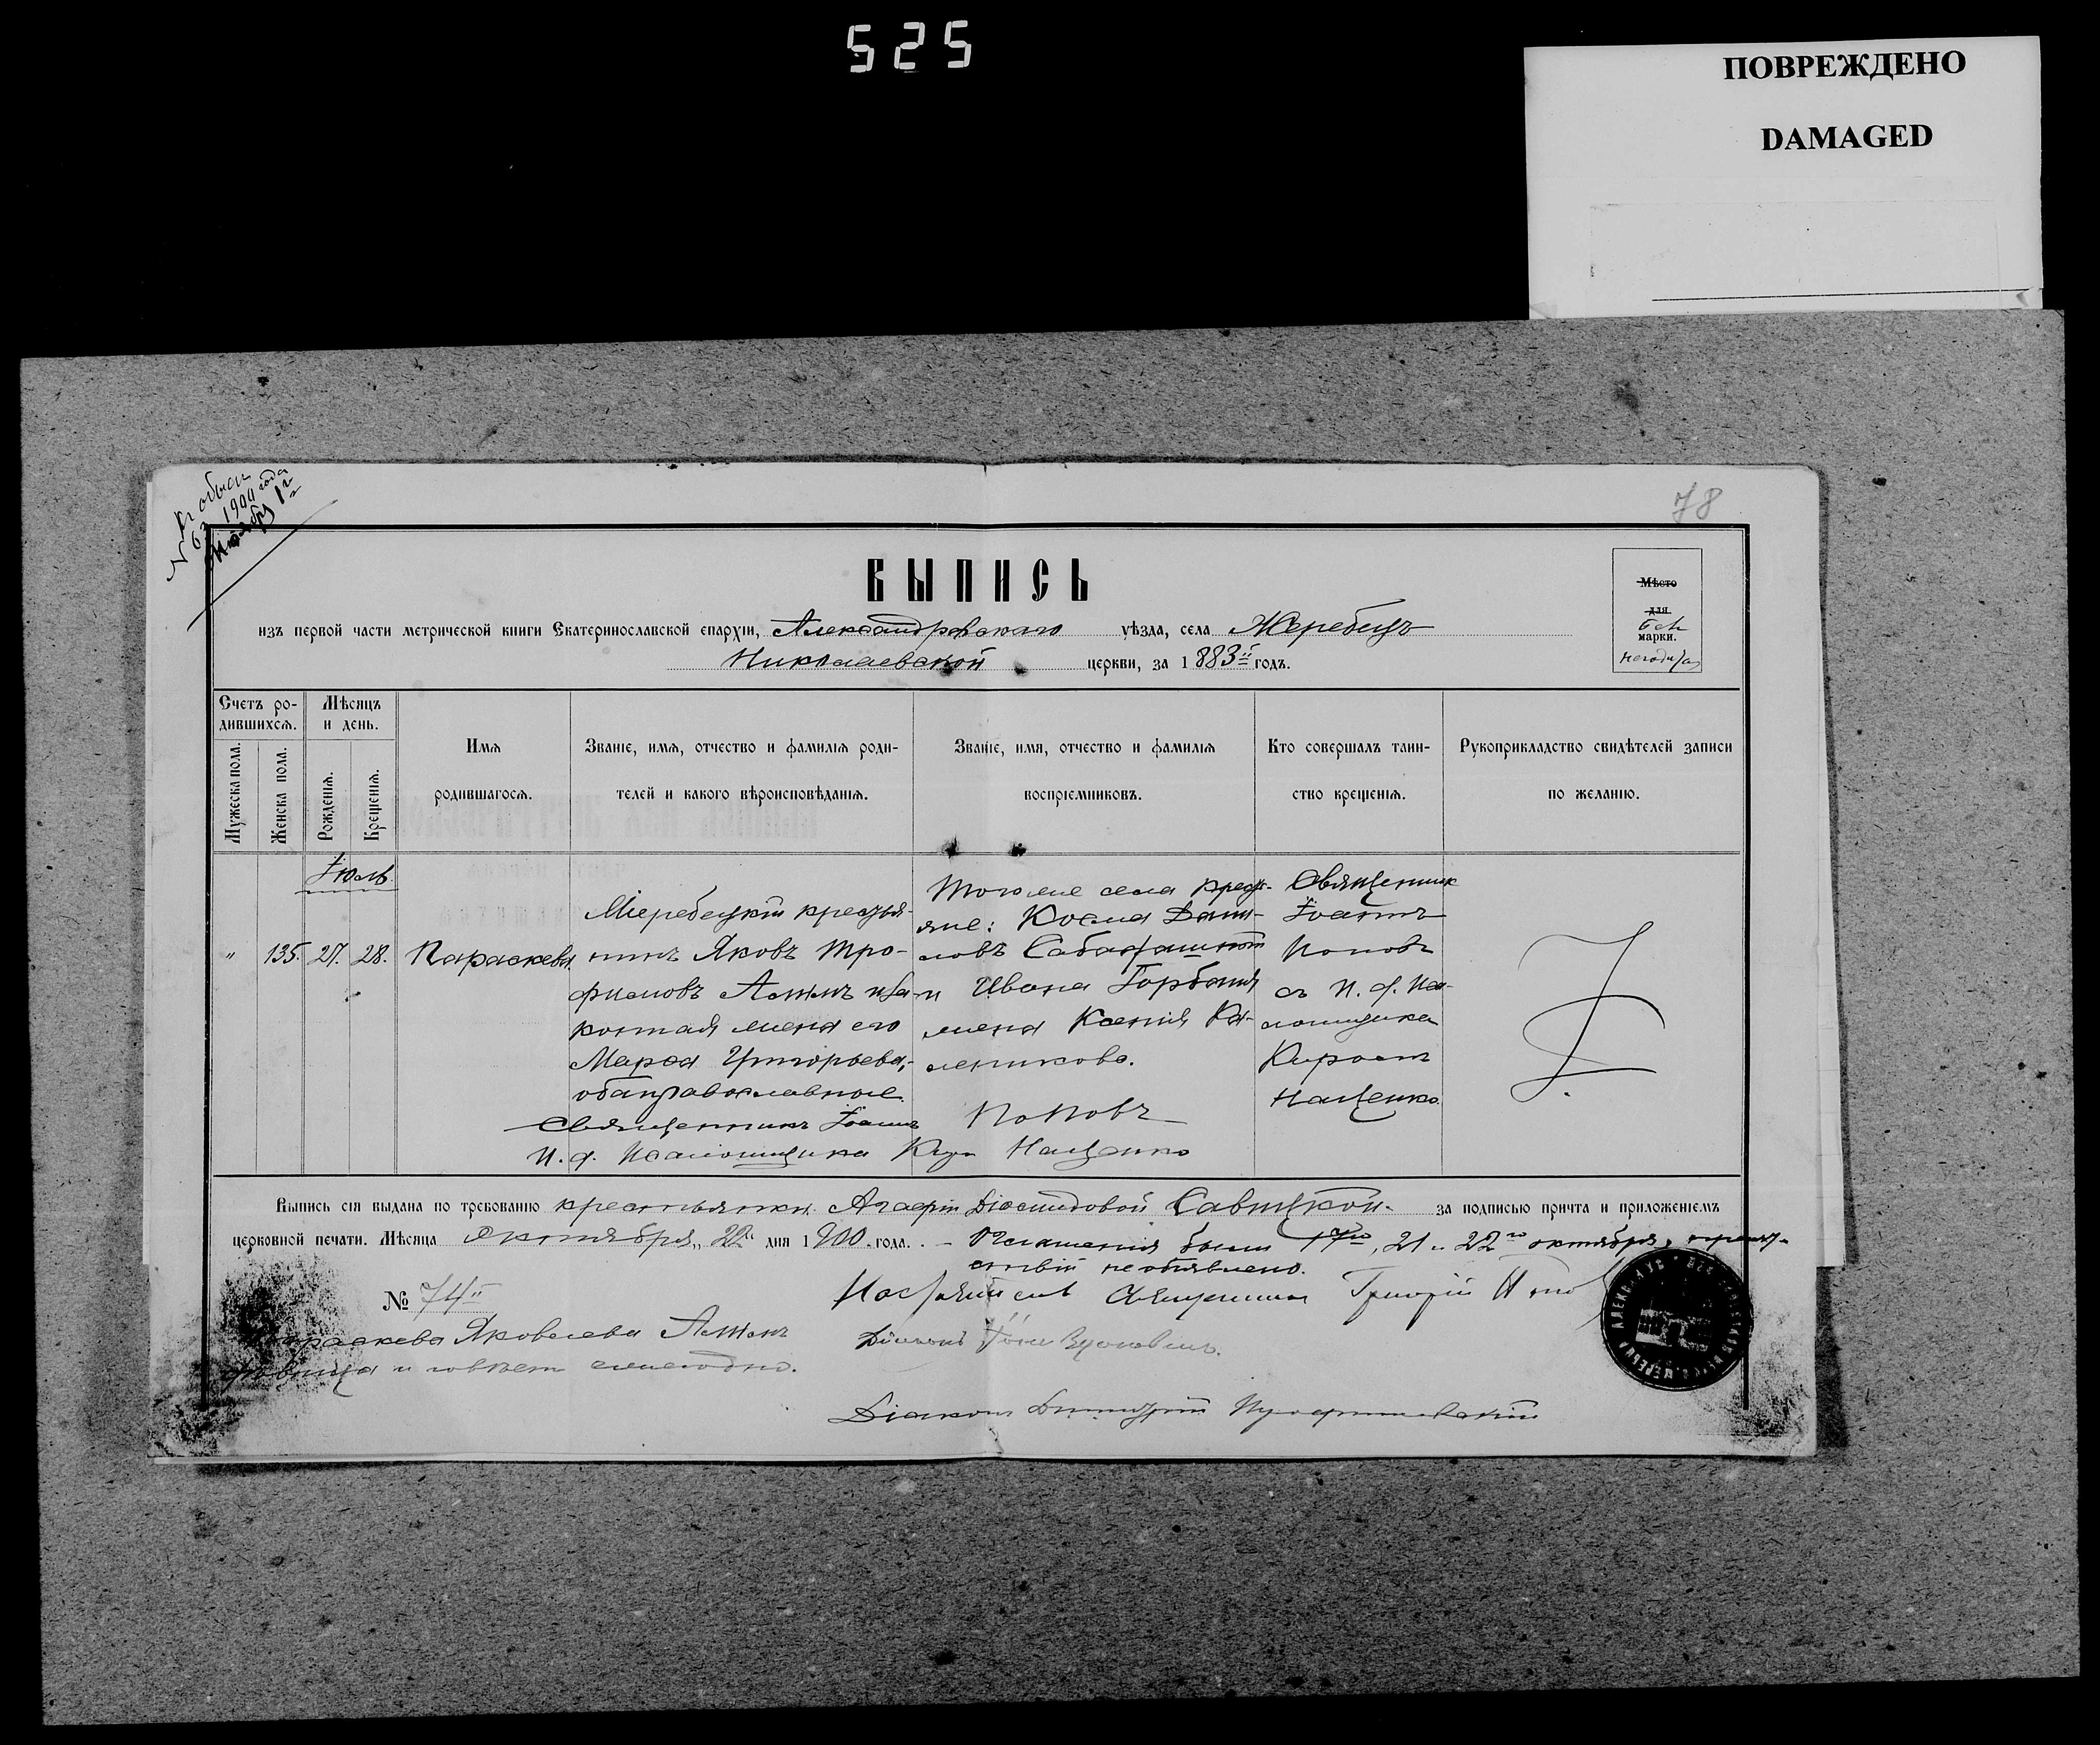 525
ПОВРЕЖДЕНО
DAMAGED
78
1900 года
ВЫПИСЬ
изъ первой части метрической книги Екатеринославской епархіи, Александровскаго уѣзда, села Жеребецъ
Николаевской церкви, за 1883й годъ.
Мѣсто
для
марки.
Счетъ ро-
дившихся.
Мужеска пола.
Женска пола.
Мѣсяцъ
и день.
Рожденія.
Крещенія.
Имя
родившагося.
Званіе, имя, отчество и фамилія роди-
телей и какого вѣроисповѣданія.
Званіе, имя, отчество и фамилія
воспріемниковъ.
Кто совершалъ таин-
ство крещенія.
Рукоприкладство свидѣтелей записи
по желанію.
Іюль
" 135. 27. 28. Параскева.
Жеребецкій крестья-
нинъ Яковъ Тро-
фимовъ и за-
конная жена его
Марѳа Григорьева,
оба православные.
Тогоже села крест-
яне: Косма Дани-
ловъ
и Ивана Горбаня
жена Ксенія Ка-
леникова.
Священникъ
Іоаннъ
Поповъ
съ И. д. Пса-
ломщика
Нащенко.
Священникъ Іоаннъ Поповъ
И. д. Псаломщика Нащенко
Выпись сія выдана по требованію крестьянки Агафіи Діомидовой Савицкой. за подписью причта и приложеніемъ
церковной печати. Мѣсяца Октября 22 дня 1900 года. – Оглашенія были 17го, 21 и 22го октября, препят-
ствій не объявлено.
№ 74й
Настоятель Священникъ Григорій
Параскева Яковлева
дѣвица и говѣетъ ежегодно.
Діаконъ
Діаконъ Димитрій